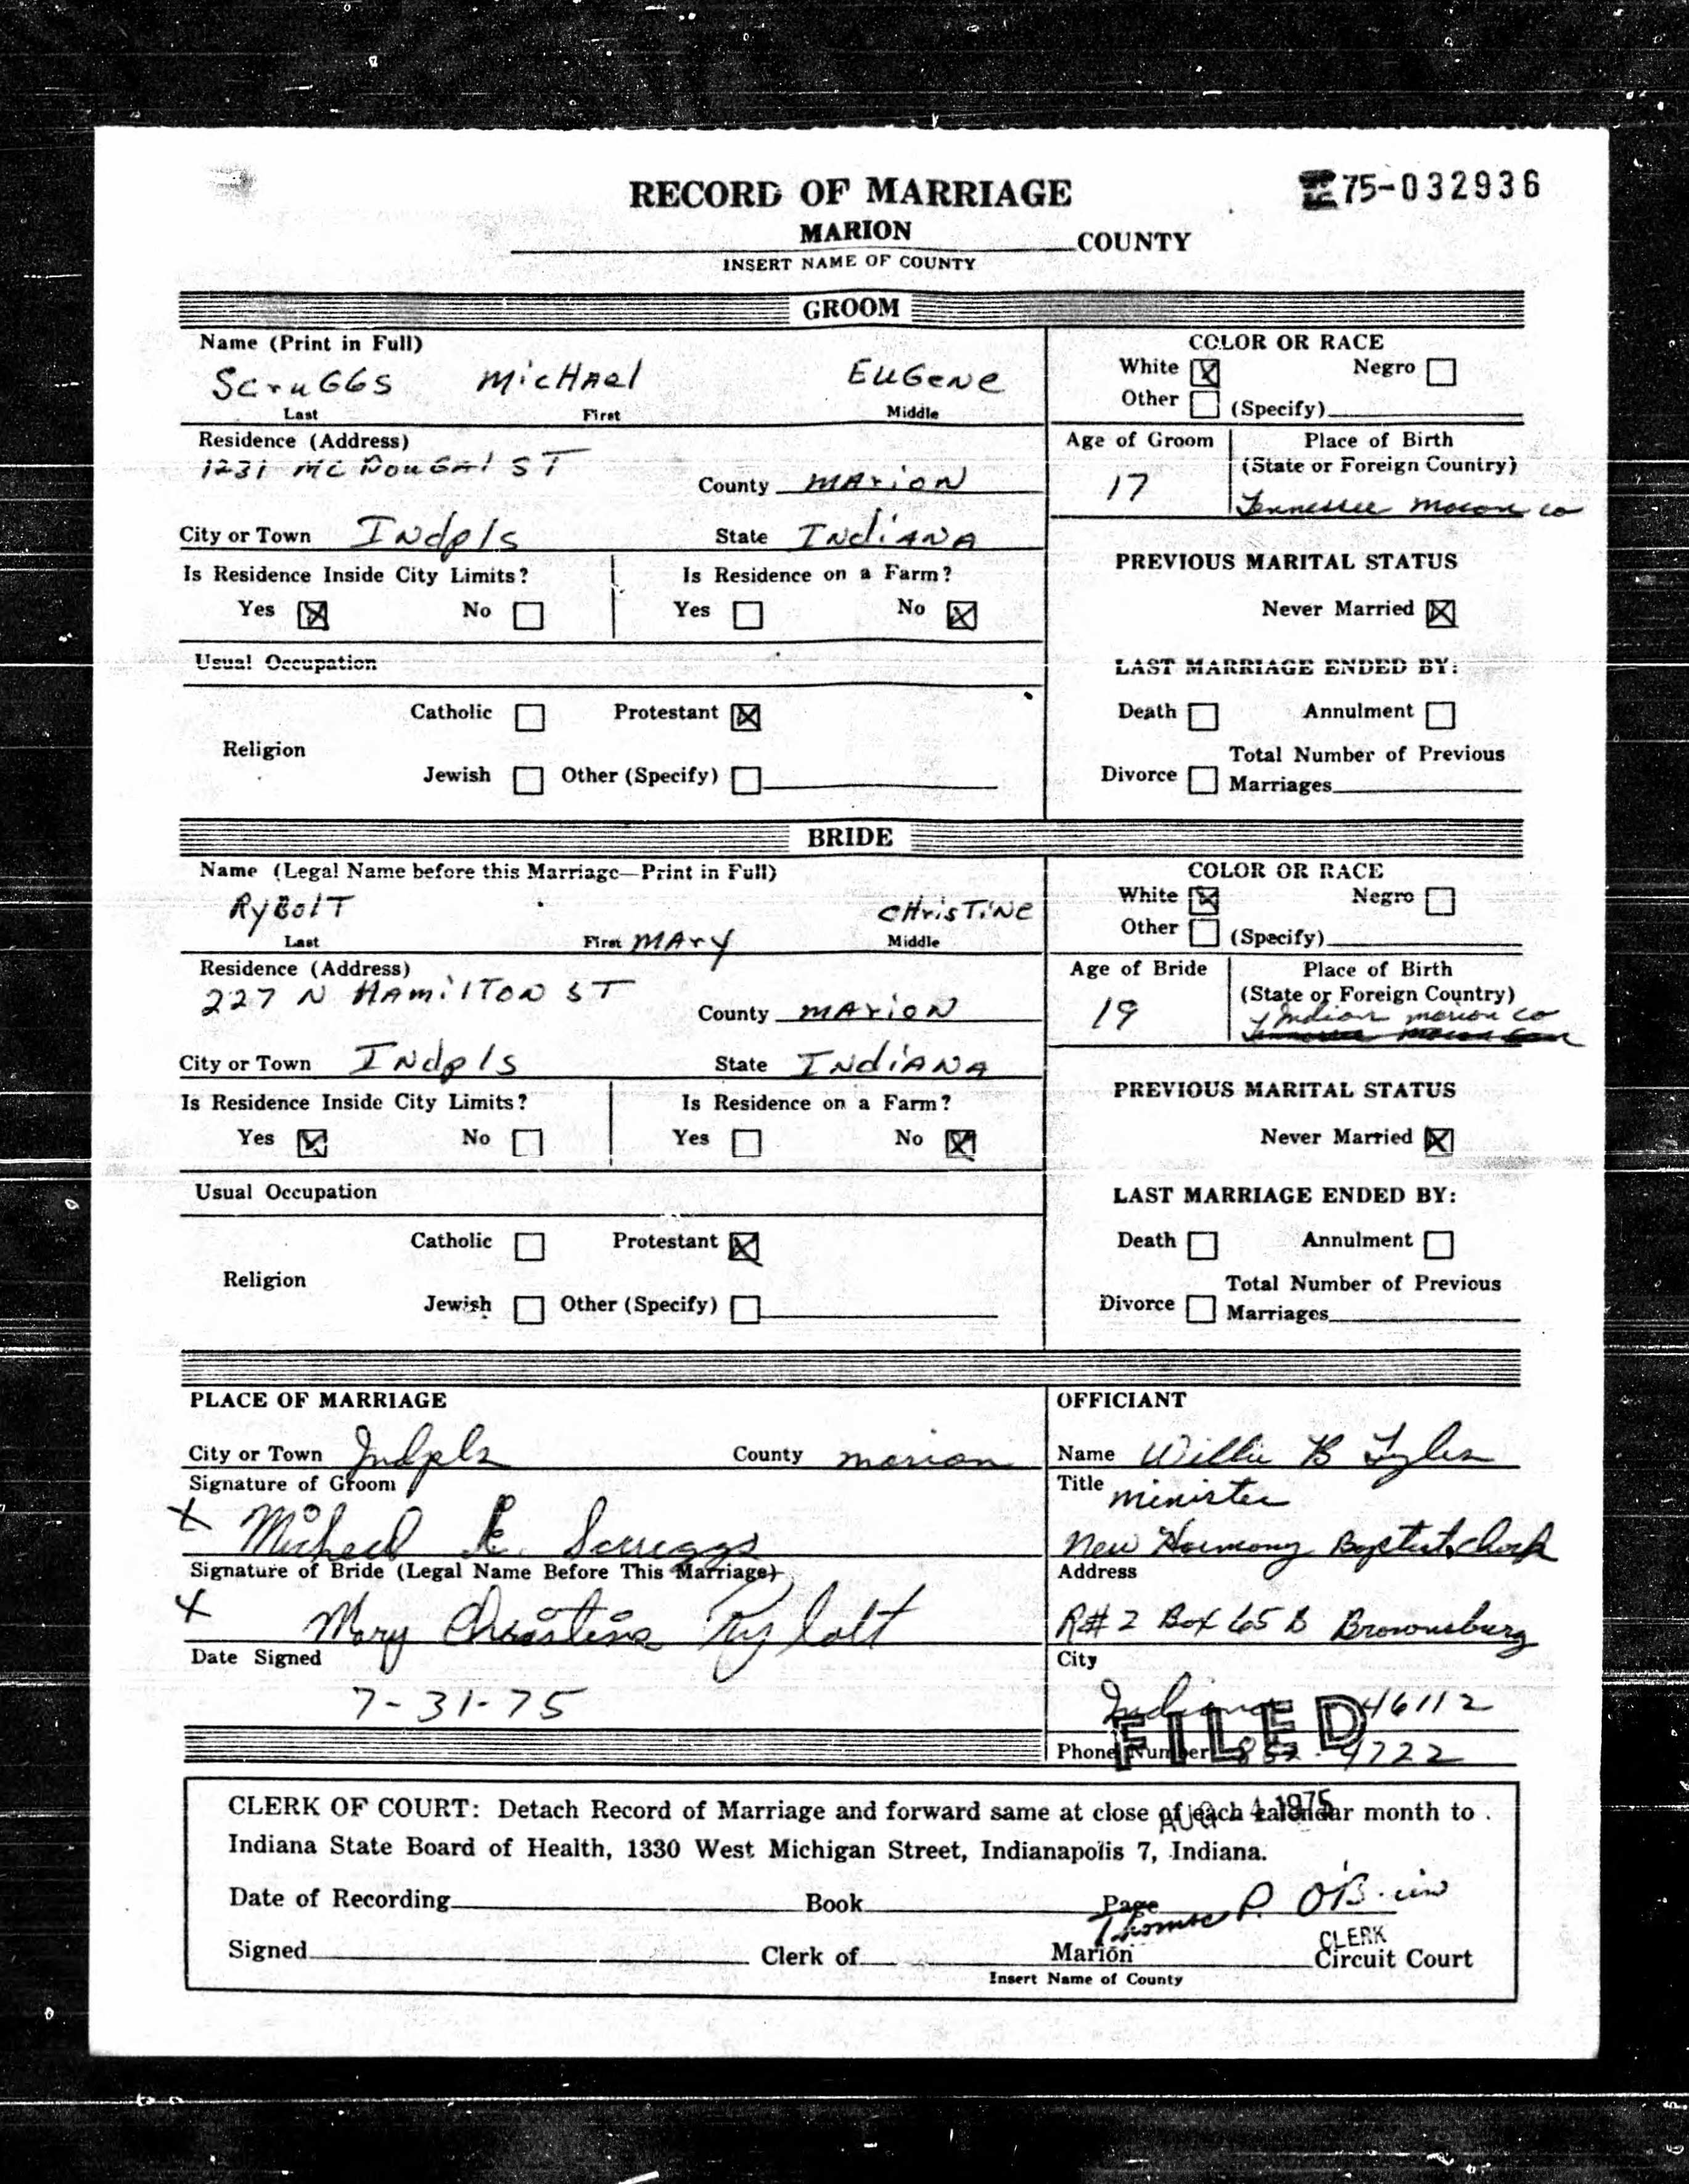 RECORD OF MARRIAGE
75-032936
MARION COUNTY
INSERT NAME OF COUNTY
GROOM
Name (Print in Full)
ScruGGs MicHAel EUGeNe
Last First Middle
COLOR OR RACE
White ☒ Negro ☐
Other ☐ (Specify)
Residence (Address)
1231 Mc DouGAl ST
County MAriON
Age of Groom
17
Place of Birth
(State or Foreign Country)
Tennessee Macon co
City or Town INdpls State INdiANA
Is Residence Inside City Limits? Is Residence on a Farm?
Yes ☒ No ☐ Yes ☐ No ☒
PREVIOUS MARITAL STATUS
Never Married ☒
Usual Occupation
LAST MARRIAGE ENDED BY:
Catholic ☐ Protestant ☒
Death ☐ Annulment ☐
Religion
Total Number of Previous
Jewish ☐ Other (Specify) ☐
Divorce ☐ Marriages
BRIDE
Name (Legal Name before this Marriage—Print in Full)
RyBolT CHrisTiNe
Last First MAry Middle
COLOR OR RACE
White ☒ Negro ☐
Other ☐ (Specify)
Residence (Address)
227 N HAmilTON ST
County MAriON
Age of Bride
19
Place of Birth
(State or Foreign Country)
Indian marion co
City or Town INdpls State INdiANA
Is Residence Inside City Limits? Is Residence on a Farm?
Yes ☒ No ☐ Yes ☐ No ☒
PREVIOUS MARITAL STATUS
Never Married ☒
Usual Occupation
LAST MARRIAGE ENDED BY:
Catholic ☐ Protestant ☒
Death ☐ Annulment ☐
Religion
Total Number of Previous
Jewish ☐ Other (Specify) ☐
Divorce ☐ Marriages
PLACE OF MARRIAGE
City or Town Indpls County marion
Signature of Groom
X Micheal E. Scruggs
Signature of Bride (Legal Name Before This Marriage)
X Mary Christine Rybolt
Date Signed
7-31-75
OFFICIANT
Name Willie B Tyler
Title minister
New Harmony Baptist
Address
R#2 Box 65 B Brownsburg
City
Indiana 46112
FILED
Phone Number 852-4722
CLERK OF COURT: Detach Record of Marriage and forward same at close of each calendar month to
AUG 4 1975
Indiana State Board of Health, 1330 West Michigan Street, Indianapolis 7, Indiana.
Date of Recording Book Page
Thomas P. O'Brien
CLERK
Signed Clerk of Marion Circuit Court
Insert Name of County